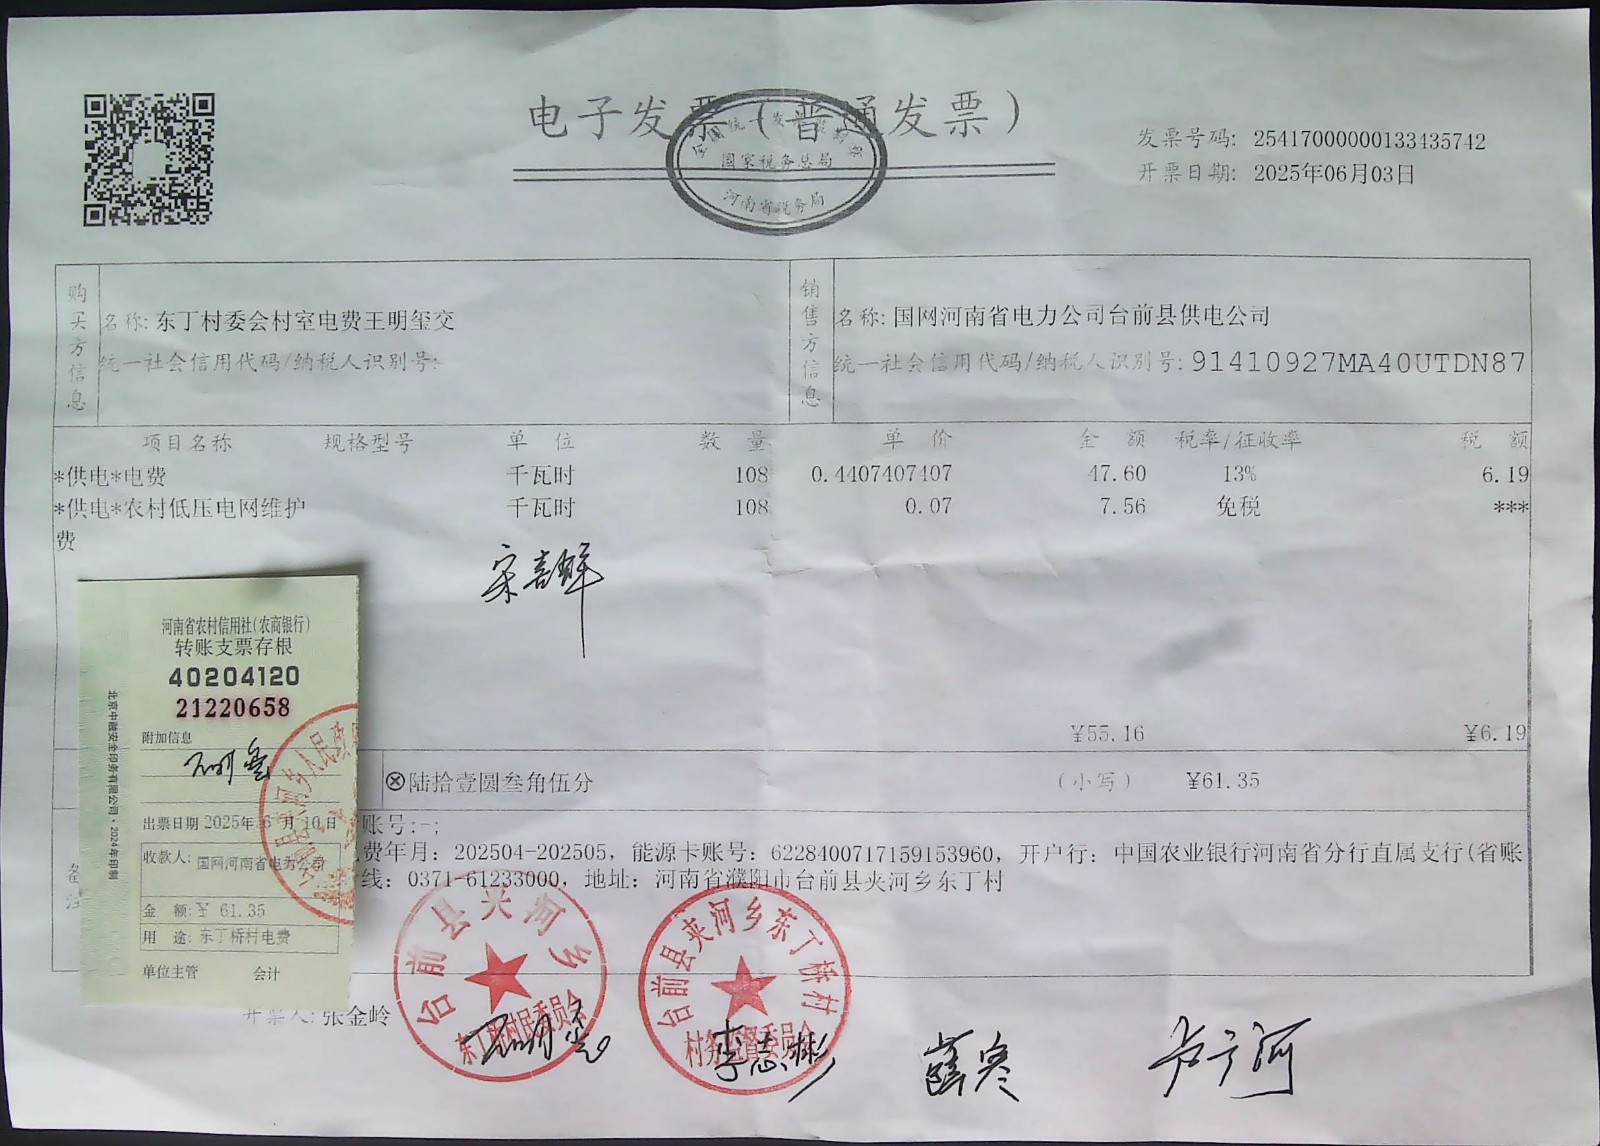 电子发票（普通发票）
全国统一发票监制章
国家税务总局
河南省税务局
发票号码: 25417000000133435742
开票日期: 2025年06月03日
购买方信息
名称: 东丁村委会村室电费王明玺交
统一社会信用代码/纳税人识别号:
销售方信息
名称: 国网河南省电力公司台前县供电公司
统一社会信用代码/纳税人识别号: 91410927MA40UTDN87
项目名称 规格型号 单位 数量 单价 金额 税率/征收率 税额
*供电*电费 千瓦时 108 0.4407407407 47.60 13% 6.19
*供电*农村低压电网维护 千瓦时 108 0.07 7.56 免税 ***
费
¥55.16 ¥6.19
ⓧ陆拾壹圆叁角伍分 （小写） ¥61.35
账号:-;
费年月: 202504-202505, 能源卡账号: 6228400717159153960, 开户行: 中国农业银行河南省分行直属支行(省账
线: 0371-61233000, 地址: 河南省濮阳市台前县夹河乡东丁村
备注
河南省农村信用社(农商银行)
转账支票存根
40204120
21220658
附加信息
出票日期 2025年 6月 10日
收款人: 国网河南省电力公司
金 额: ¥ 61.35
用 途: 东丁桥村电费
单位主管 会计
北京中融安全印务有限公司·2024年印制
开票人: 张金岭
台前县夹河乡
东丁桥村民委员会
台前县夹河乡东丁桥村
村务监督委员会
李志彬
薛寒